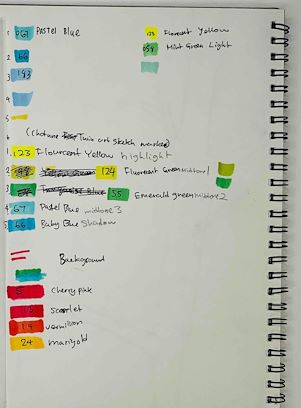 1 67 Pastel Blue
2 66
3 183
4
5
123 Florecent Yellow
58 Mint Green Light
(Chotune Twin art sketch marker)
1. 123 Flourcent Yellow highlight
2 124 Fluorescent Green midtone 1
3 Turquoise Blue 55. Emerald green midtone 2
4 67 Pastel Blue midtone 3
5 66 Baby Blue Shadow
Background
5 Cherry pink
15 scarlet
14 vermillion
24 marigold